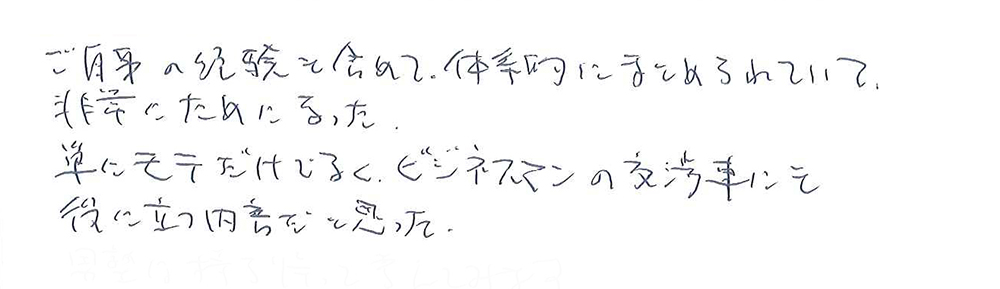 ご自身の経験も含めて、体系的にまとめられていて、
非常にためになった。
単にモテだけでなく、ビジネスマンの交渉事にも
役に立つ内容だと思った。